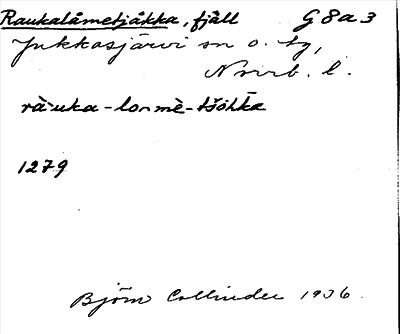 Raukalåmetjåkka, fjäll G8a3
Jukkasjärvi sn o. tg,
Norrb. l.
rà·uka-lo·mè-tšåhka
1279
Björn Collinder 1936.